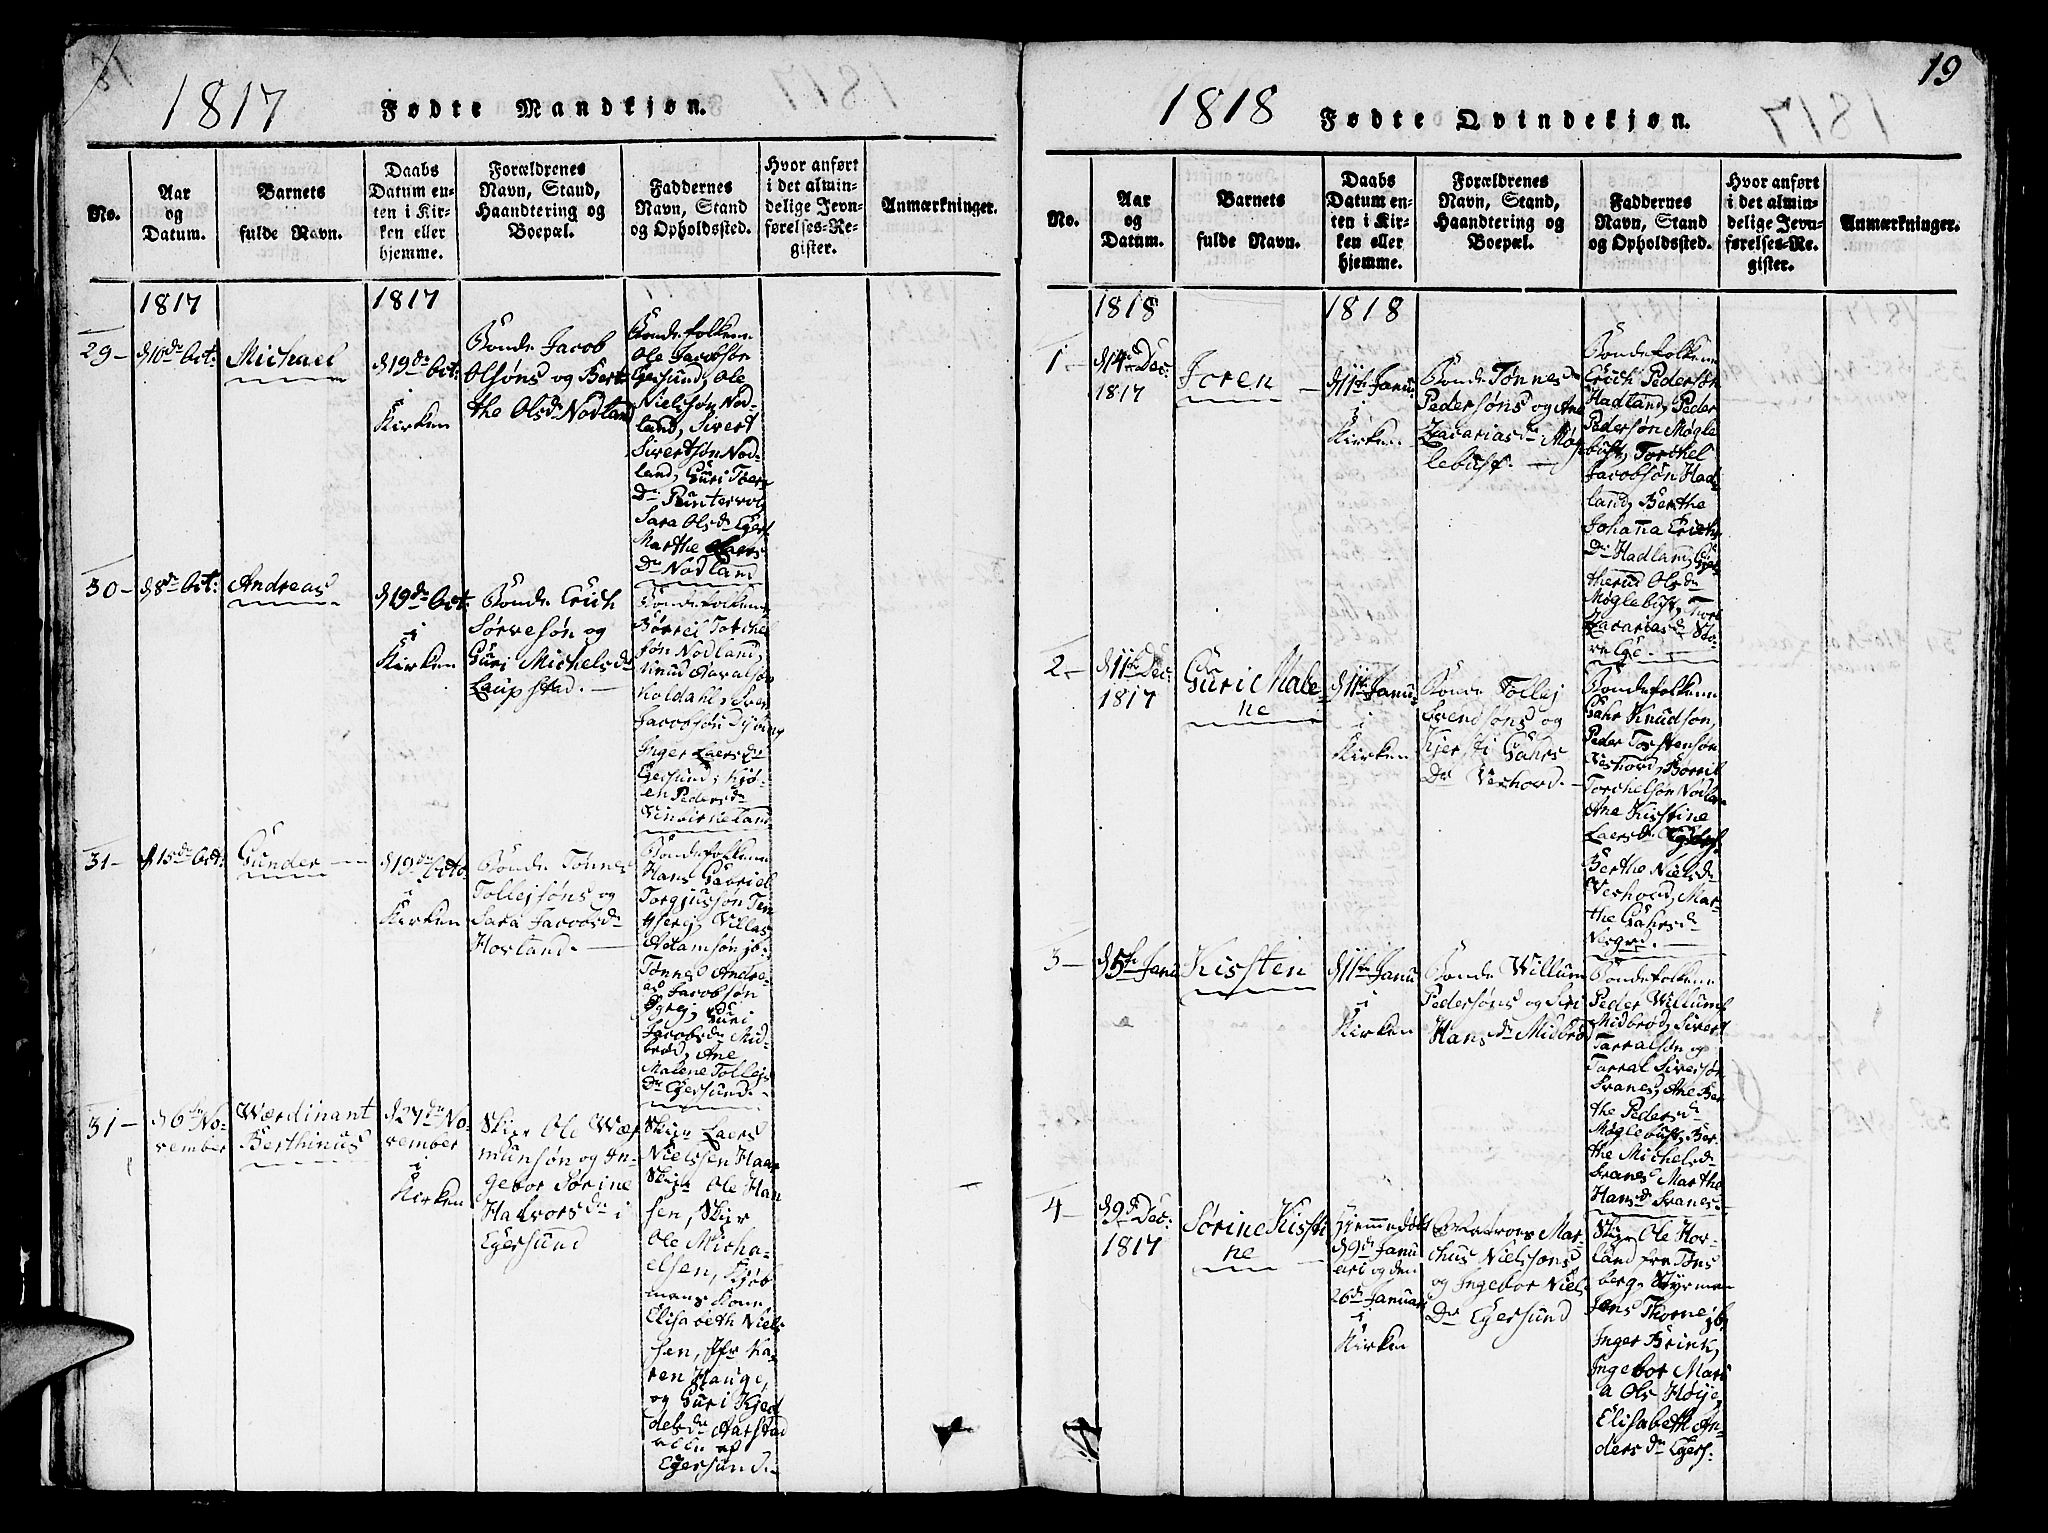 1817
Fødte Mandkjøn.
No.
Aar
og
Datum.
Barnets
fulde Navn.
Daabs
Datum en-
ten i Kir-
ken eller
hjemme.
Forældrenes
Navn, Stand,
Haandtering og
Boepæl.
Faddernes
Navn, Stand
og Opholdssted.
Hvor anført
i det almin-
delige Jevn-
førelses-Re-
gister.
Anmærkninger.
1817
1817
29-
d 10de Oct:
Michael
d 19de Oct:
i
Kirken
Bonde Jacob
Olsøns og Bert
the Olsdr Nodland
Bondefolkene
Ole Jacobsøn
Egersund, Ole
Nielsøn Nod-
land, Sivert
Sivertsøn Nod-
land, Guri Toers
Dr Puntervol
Sara Olsdr Egers
Marthe Laers
Dr Nodland
30-
d 8de Oct:
Andreas
d 19de Oct.
i
Kirken
Bonde Erich
Sørvesøn og
Guri Michelsdr
Laupstad.
Bondefolkene
Børrel Torchel
søn Nodland,
Knud
Koldahl, Sven
Jacobsøn
Inger Laersdr
Egersund, Kjø-
en Pedersdr
31-
d 15de Oct:
Gunder
d 19de Octo.
i
Kirken
Bonde Tønnes
Tollejsøns og
Sara Jacobsdr
Hovland.
Bondefolkene
Hans Gabriel
Torgjussøn Ten
Villas
Adamsøn ib.
Tønnes Andre-
as Jacobsøn
Guri
Jacobsdr Mid-
brød, Ane
Malene Tollejs
Dr Egersund.
31-
d 6de No-
vember
Wærdinant
Berthinus
d 27de No-
vember
i
Kirken
Skipr Ole Wæs
munsøn og In-
gebor Sørine
Halvorsdr i
Egersund
Skipr Laers
Nielssen Haar
Skipr Ole Han
sen, Skipr
Ole Micha-
elsen, Kjøb
mans Kone
Elisabeth Niels
sen, Jfr Ka-
ren Hauge,
og Guri Kjed
delsdr Aarstad
alle af
Egersund.
19
1818
Fødte Qvindekjøn.
No.
Aar
og
Datum.
Barnets
fulde Navn.
Daabs
Datum en-
ten i Kir-
ken eller
hjemme.
Forældrenes
Navn, Stand,
Haandtering og
Boepæl.
Faddernes
Navn, Stand
og Opholdssted.
Hvor anført
i det almin-
delige Jevn-
førelses-Re-
gister.
Anmærkninger.
1818
1818
1-
d 14de Dec:
1817
Joren
d 11te Janu:
i
Kirken
Bonde Tønnes
Pedersøns og Ane
Zacariasdr Møg
lebust.
Bondefolkene
Erich Pedersøn
Hadland, Peder
Pedersøn Møgle
bust, Torchel
Jacobsøn Had-
land, Berthe
Johana Erichs
Dr Hadland, Gjer
therud Olsdr
Møglebust, Tor
Zacariasdr Sto-
2-
d 11te Dec:
1817
Guri Male-
ne
d 11te Janu:
i
Kirken
Bonde Tollej
Svendsøns og
Kjersti Gahrs
Dr Veshovd.
Bondefolkene
Gahr Knudsøn,
Peder Torstensøn
Veshovd, Børril
Torchelsøn Nodlan
Ane Kirstine
Laersdr Egers.
Berthe Nielsdr
Veshovd, Mar-
the Gahrsdr
3-
d 5te Janu
Kisten
d 11te Janu
i
Kirken
Bonde Willum
Pedersøns og Siri
Hansdr Midbrød
Bondefolkene
Peder Willums
Midbrød, Sivert
Tarralsøn og
Tarral Siversøn
Svanes, Ane Ber
the Pedersdr
Møglebust, Ber-
the Michelsdr
Svanes, Marthe
Hansdr Svanes.
4-
d 9de Dec:
1817
Sørine Kisti
ne
Hjemmedøbt
d 9de Janu
ari og den
26de Januari
i
Kirken
Mar-
chus Nielssøns
og Ingebor Niels
Dr Egersund
Skipr Ole Hov-
land fra Tøns
berg, Styrman
Jens Thorne ib,
Inger Brink,
Ingebor Mari
a Ols Høije
Elisabeth An-
dersdr Egers.